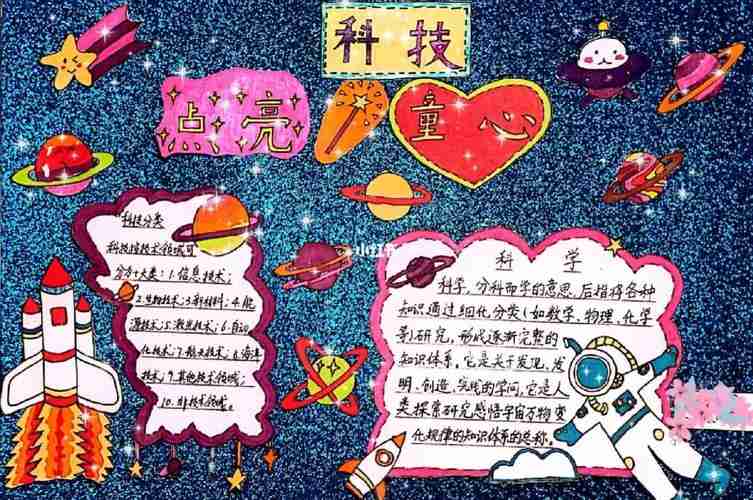 科技
点亮
童心
科技分类
科技按技术领域可
分为十大类：1.信息技术；
2.生物技术；3.新材料；4.能
源技术；5.激光技术；6.自动
化技术；7.航天技术；8.海洋
技术；9.其他技术领域；
10.非技术领域。
科学
科学，分科而学的意思，后指将各种
知识通过细化分类（如数学，物理，化学
等）研究，形成逐渐完整的
知识体系。它是关于发现，发
明，创造，实践的学问，它是人
类探索研究感悟宇宙万物变
化规律的知识体系的总称。